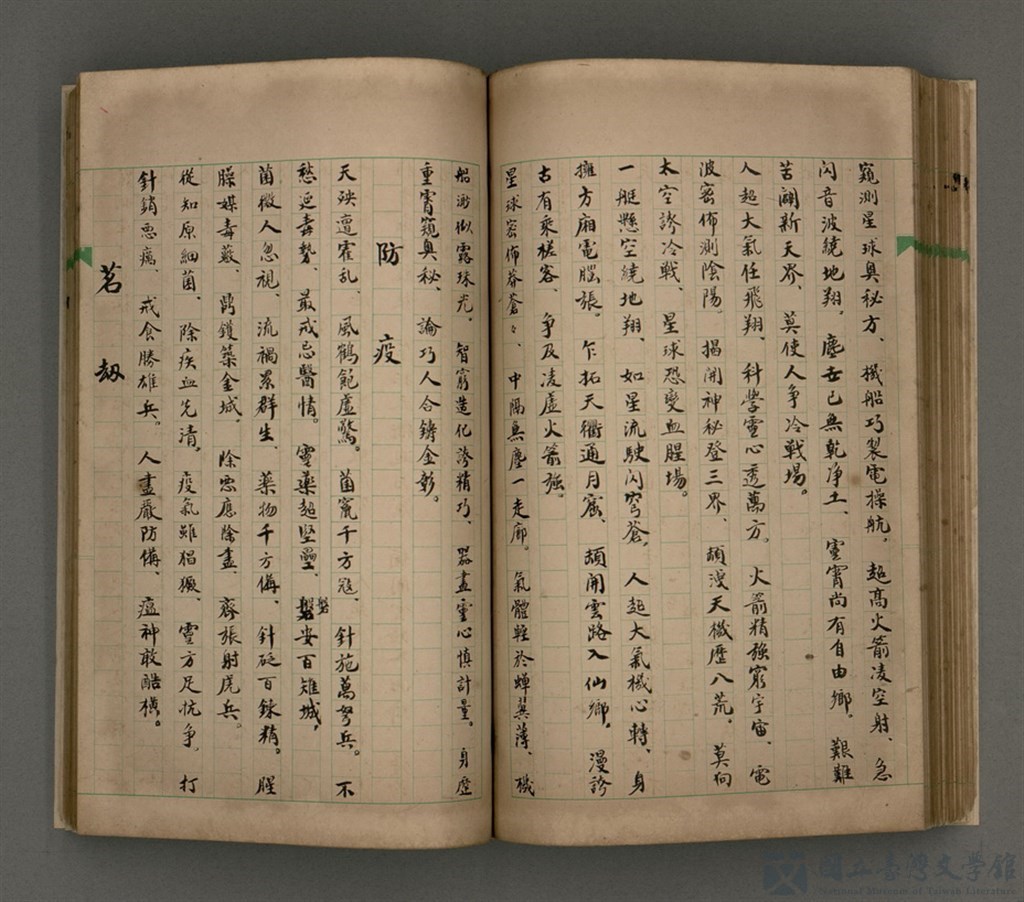 窺測星球奧秘方、機船巧製電操航。超高火箭凌空射、急
閃音波繞地翔。塵世已無乾淨土、靈霄尚有自由鄉。艱難
苦闢新天界、莫使人爭冷戰場。
人超大氣任飛翔、科學靈心透萬方。火箭精強窮宇宙、電
波密佈測陰陽。揭開神秘登三界、頡漫天機歷八荒。莫向
太空誇冷戰、星球恐變血腥場。
一艇懸空繞地翔、如星流駛閃穹蒼。人超大氣機心轉、身
擁方廂電腦張。乍拓天衢通月窟、頡開雲路入仙鄉。漫誇
古有乘槎客、爭及凌虛火箭強。
星球密佈莽蒼々、中隔無塵一走廊。氣體輕於蟬翼薄、機
船渺似露珠光。智窮造化誇精巧、器盡靈心慎計量。身歷
重霄窺奧秘、論巧人合鑄金彰。
防疫
天殃遭霍乱、風鶴飽虛驚。菌竄千方寇、針施萬弩兵。不
愁延毒勢、最戒忌醫情。靈藥超堅壘、磐安百雉城。
盤
菌微人忽視、流禍累群生。藥物千方備、針砭百鍊精。腥
臊媒毒藪、鼎鑊築金城。除惡應除盡、齊張射虎兵。
從知原細菌、除疾血先清。疫氣雖猖獗、靈方足抗爭。打
針銷惡瘍、戒食勝雄兵。人盡嚴防備、瘟神敢酷橫。
茗劫
國立臺灣文學館
National Museum of Taiwan Literature